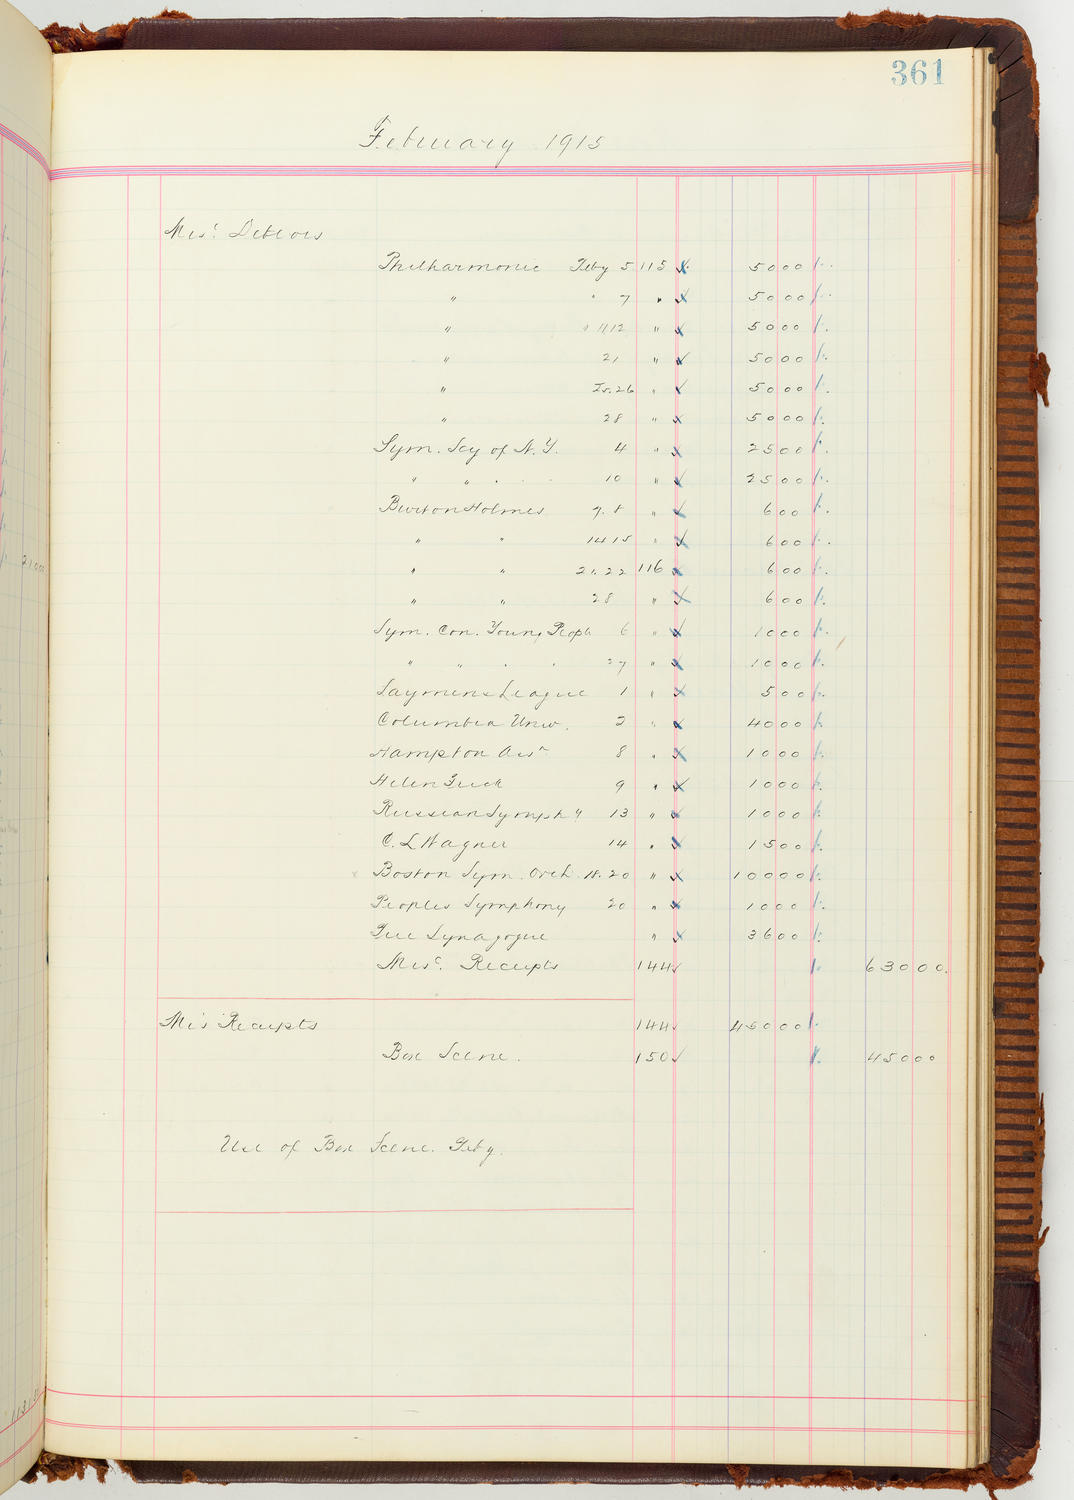 361
February 1915
Misc. Debtors
Philharmonic Feby 5 115 5000
" " 7 " 5000
" " 11.12 " 5000
" 21 " 5000
" 25.26 " 5000
" 28 " 5000
Sym. Socy of N.Y. 4 " 2500
" " " 10 " 2500
Burton Holmes 7.8 " 600
" " 14 15 " 600
" " 21.22 116 600
" " 28 " 600
Sym. Con. Young People 6 " 1000
" " " " 27 " 1000
Laymens League 1 " 500
Columbia Univ. 2 " 4000
Hampton Assn 8 " 1000
Helen 9 " 1000
Russian Symphy 13 " 1000
C. L Wagner 14 " 1500
Boston Sym. Orch. 18.20 " 10000
Peoples Symphony 20 " 1000
Free Synagogue " 3600
Misc. Receipts 144 63000.
21000
Mis Receipts 144 45000
Box Scene. 150 45000
Use of Box Scene. Feby.